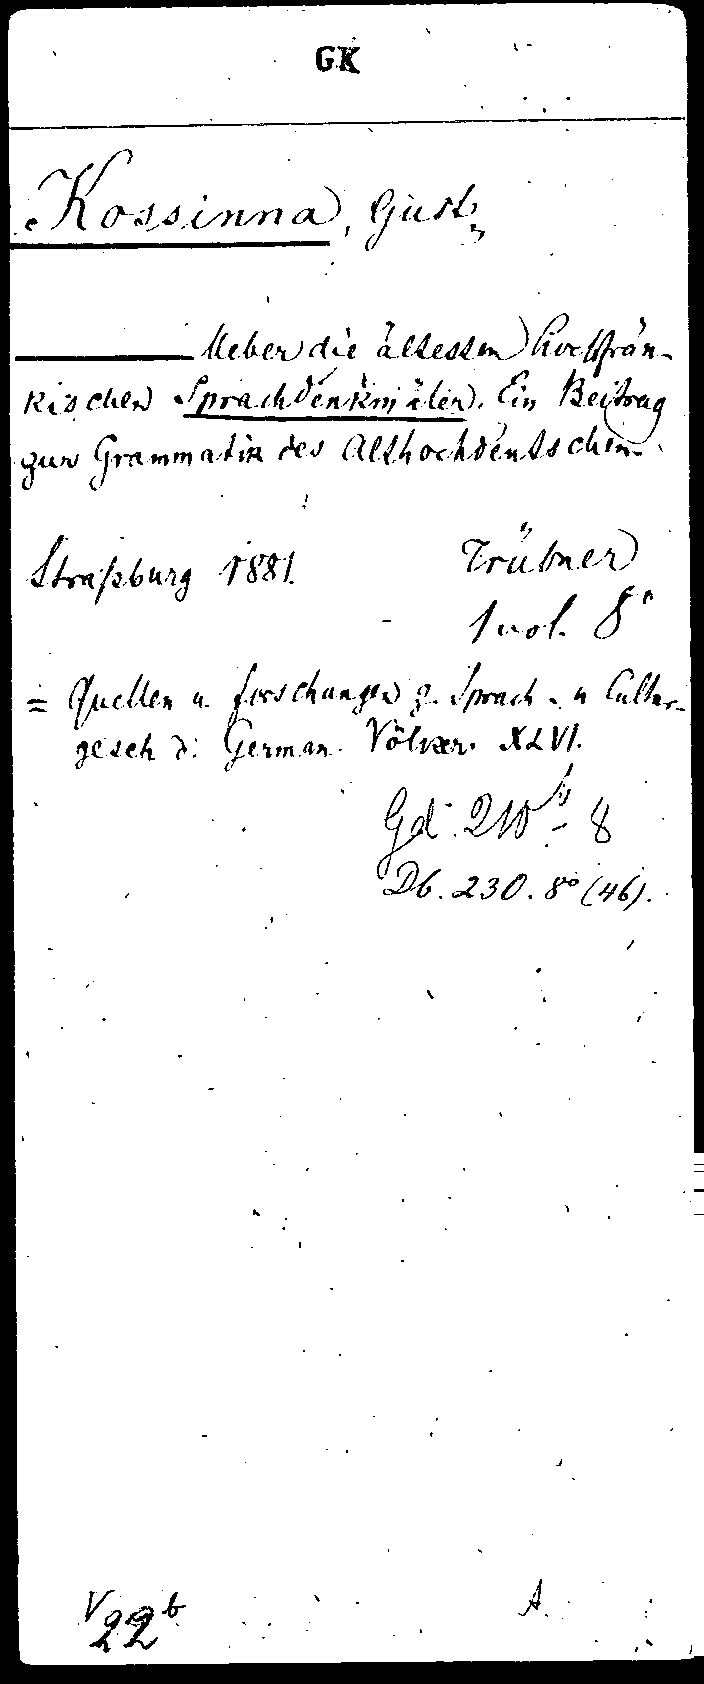 GK
Kossinna, Gust.
Ueber die ältesten hochfrän-
kischen Sprachdenkmäler. Ein Beitrag
zur Grammatik des Althochdeutschen.
Straßburg 1881. Trübner
1 vol. 8°
= Quellen u. Forschungen z. Sprach- u Cultur-
gesch d. German. Völker. XLVI.
Gd. 210 - 8
Db. 230. 8° (46).
V 22 b A.